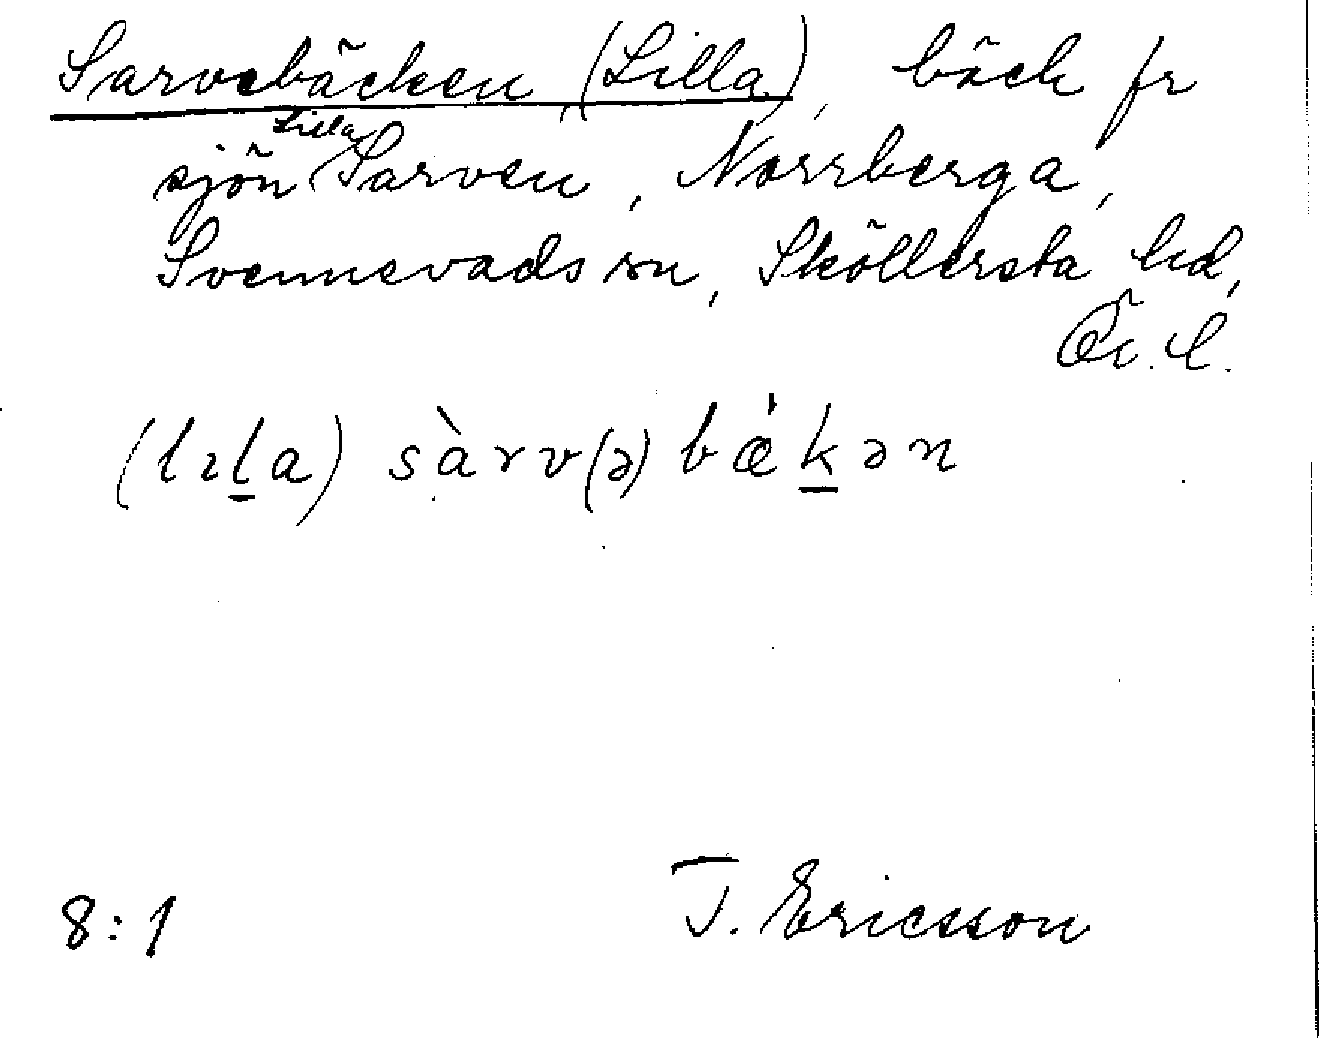 Sarvebäcken, (Lilla), bäck fr
sjön Lilla Sarven, Norrberga,
Svennevads sn, Sköllersta hd,
Ör. l.
(lıl̲a) sàrv(ə)bǽk̲ən
8:1 T. Ericsson